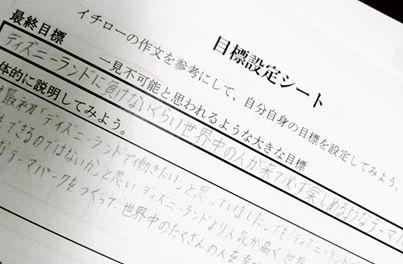 目標設定シート
イチローの作文を参考にして、自分自身の目標を設定してみよう。
最終目標　一見不可能と思われるような大きな目標
ディズニーランドに負けないくらい世界中の人が来て必ず楽しめる
体的に説明してみよう。
最初「ディズニーランドで働きたい」と思っていました。でも「ディズニーラン
できるのではないか」と思い ディズニーランドより人気が高く、世界
テーマパークをつくって、世界中のたくさんの人を